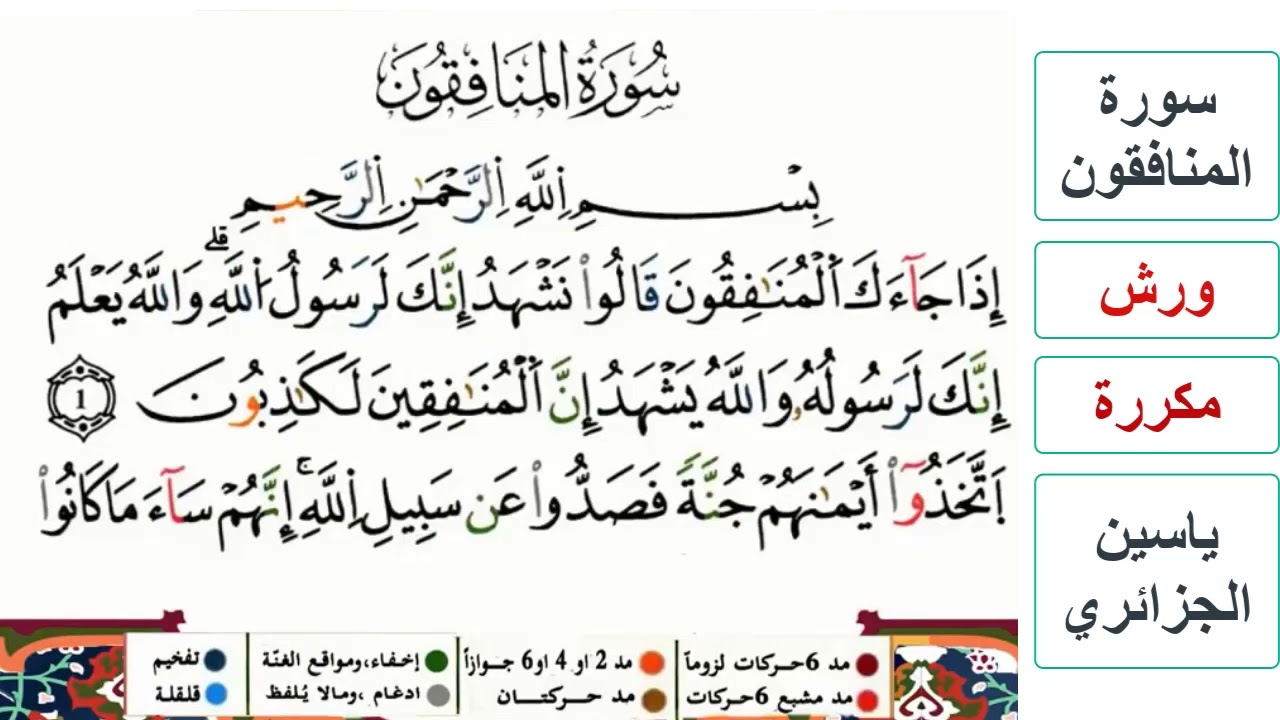 سُورَةُ الْمُنَافِقُونَ
بِسْمِ اِ۬للَّهِ اِ۬لرَّحْمَٰنِ اِ۬لرَّحِيمِ
إِذَا جَآءَكَ اَ۬لْمُنَٰفِقُونَ قَالُواْ نَشْهَدُ إِنَّكَ لَرَسُولُ اُ۬للَّهِۖ وَاللَّهُ يَعْلَمُ
إِنَّكَ لَرَسُولُهُۥ وَاللَّهُ يَشْهَدُ إِنَّ اَ۬لْمُنَٰفِقِينَ لَكَٰذِبُونَ 1
اَ۪تَّخَذُوٓاْ أَيْمَٰنَهُمْ جُنَّةٗ فَصَدُّواْ عَن سَبِيلِ اِ۬للَّهِۚ إِنَّهُمْ سَآءَ مَا كَانُواْ
مد 6 حركات لزوماً
مد 2 او 4 او 6 جوازاً
إخفاء، ومواقع الغنّة
تفخيم
مد مشبع 6 حركات
مد حركتان
ادغام، ومالا يُلفظ
قلقلة
سورة
المنافقون
ورش
مكررة
ياسين
الجزائري